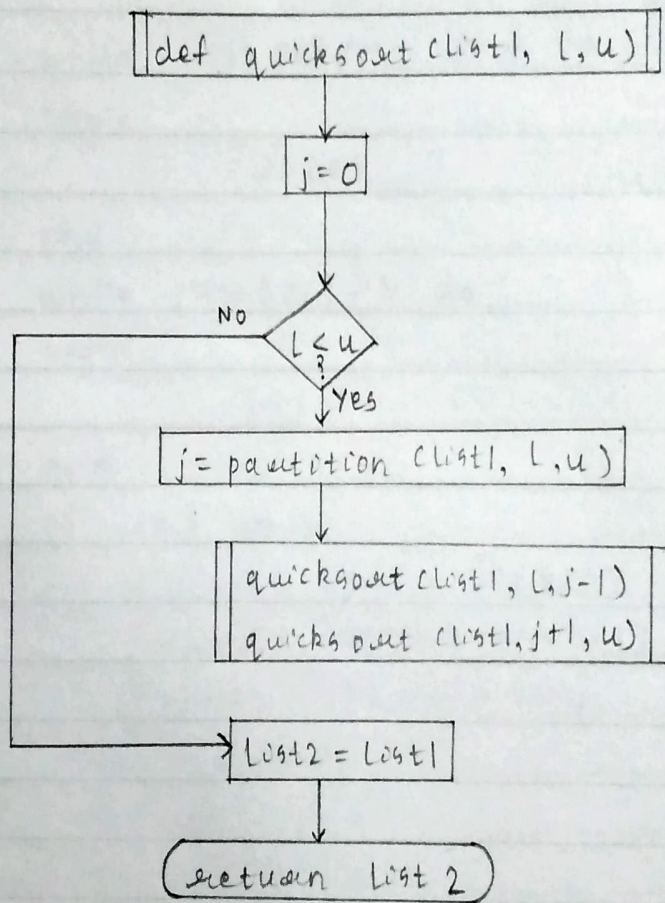 def quicksort (list1, l, u)
j = 0
No
l < u
?
Yes
j = partition (list1, l, u)
quicksort (list1, l, j-1)
quicksort (list1, j+1, u)
List2 = List1
return List 2